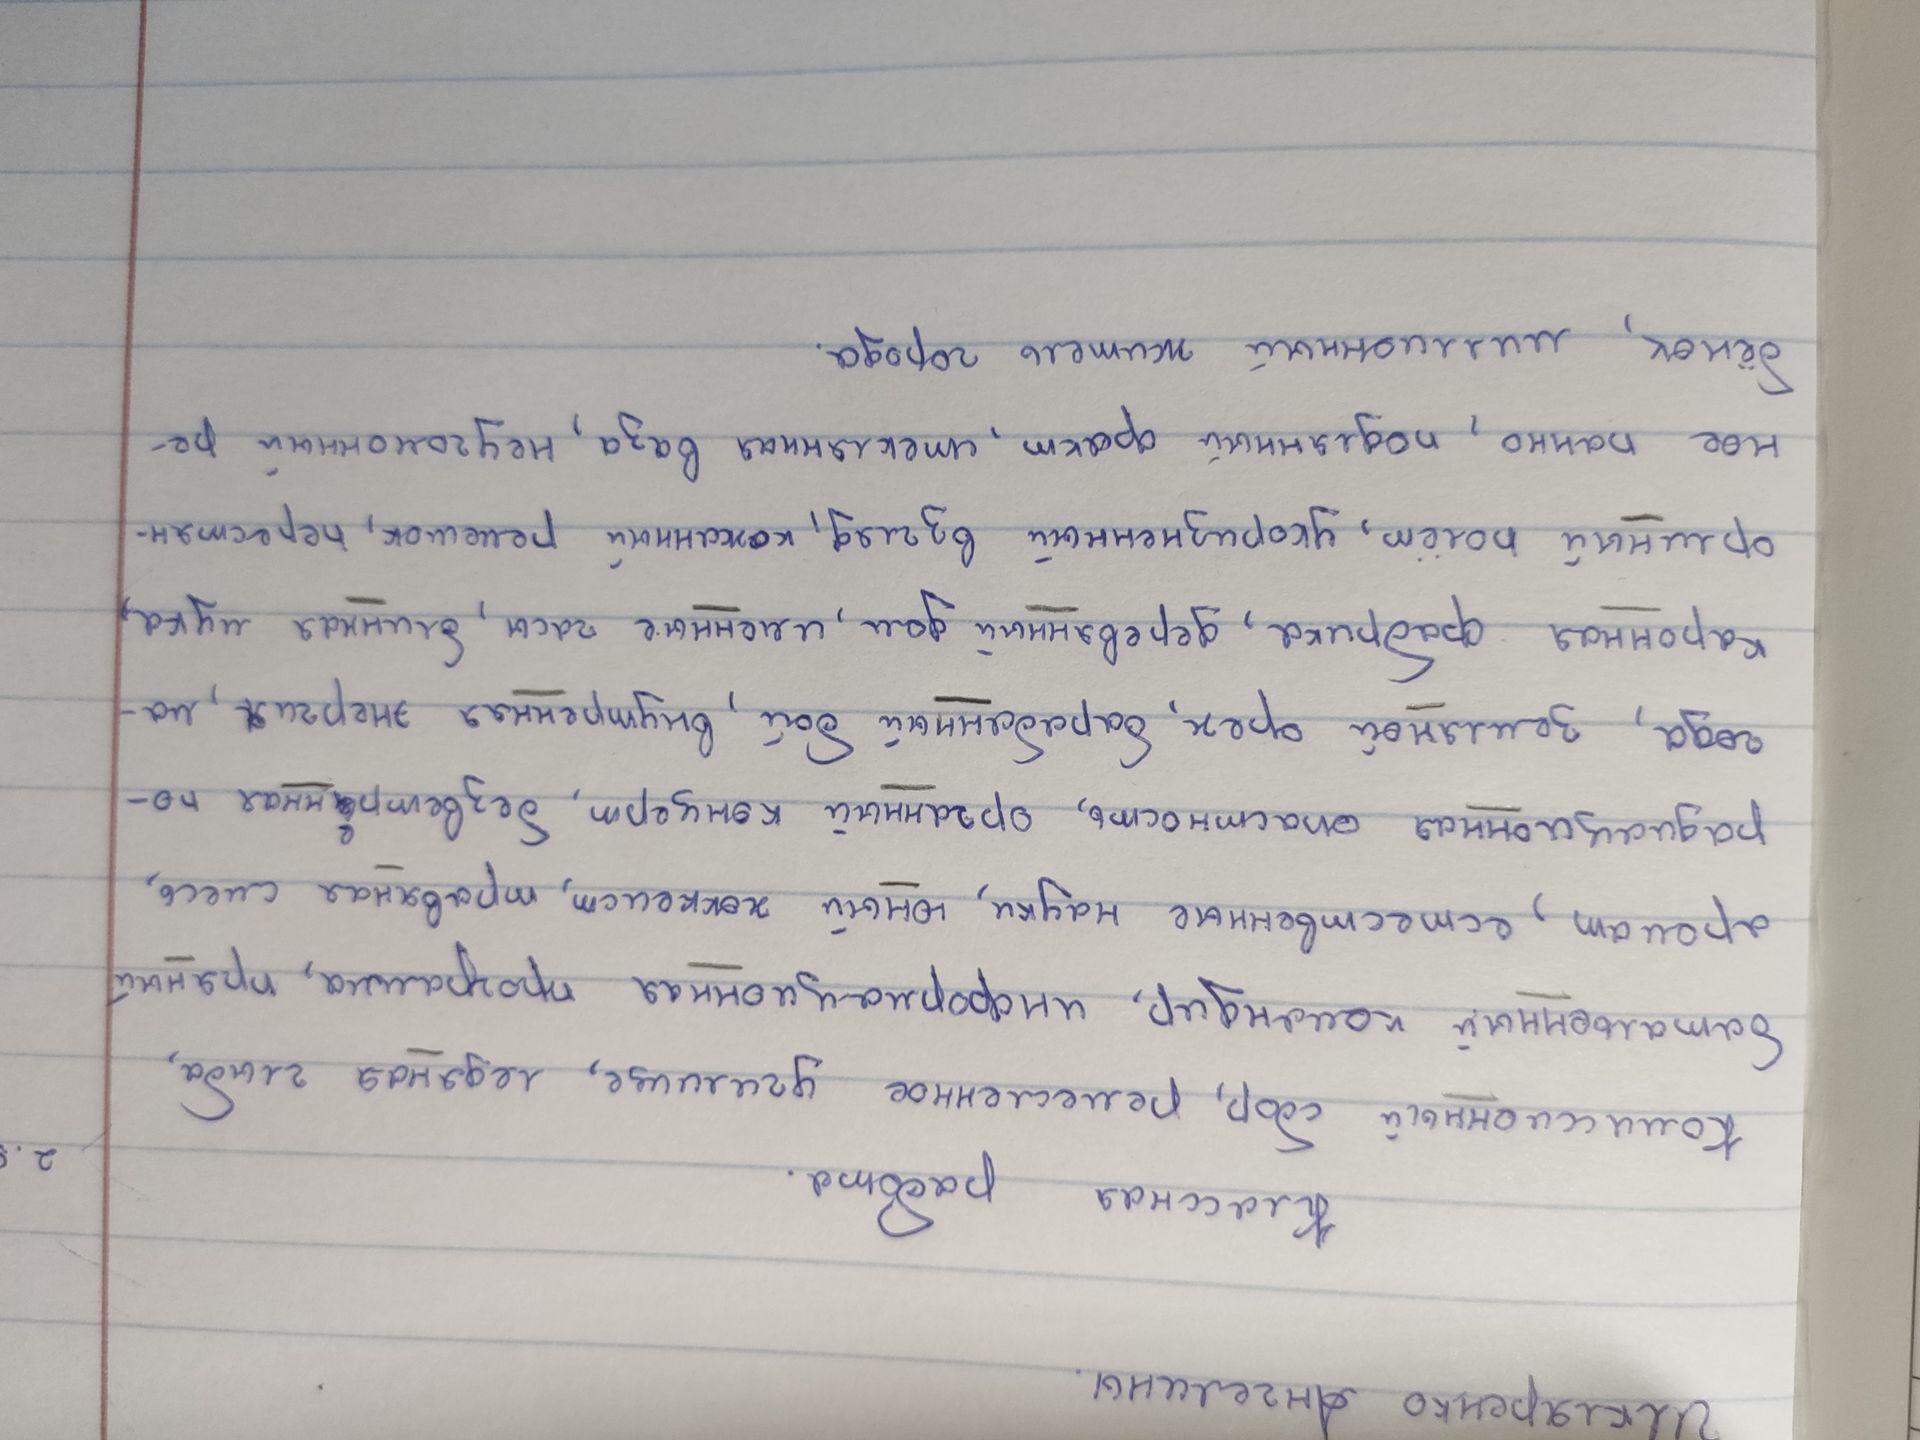 Шкляренко Ангелины.
Классная работа.
Комиссионный сбор, ремесленное училище, ледяная глыба,
батальонный командир, информационная программа, пряный
аромат, естественные науки, юный хоккеист, травяная смесь,
радиационная опасность, органный концерт, безветренная по-
года, земляной орех, барабанный бой, внутренняя энергия, ма-
каронная фабрика, деревянный дом, именные часы, блинная мука,
орлиный полёт, укоризненный взгляд, кожанный ремешок, черестян-
ное панно, подлянный факт, стеклянная ваза, неугомонный ре-
бёнок, миллионный житель города.
2.